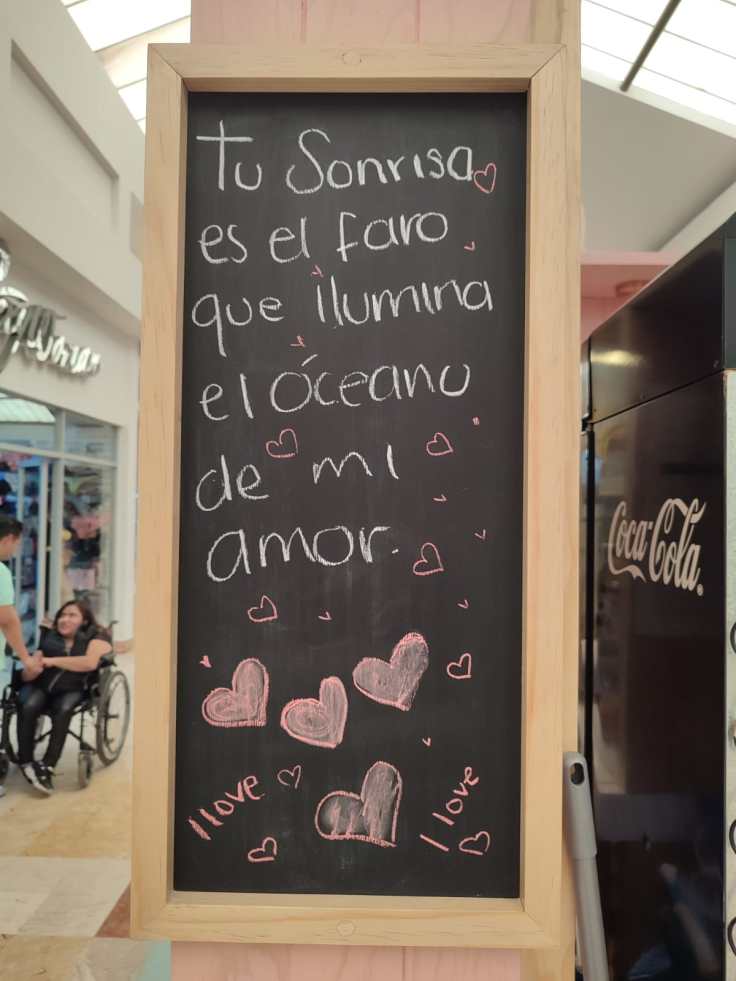 Tu Sonrisa
es el faro
que ilumina
el óceano
de mi
amor.
I love
I love
Coca-Cola